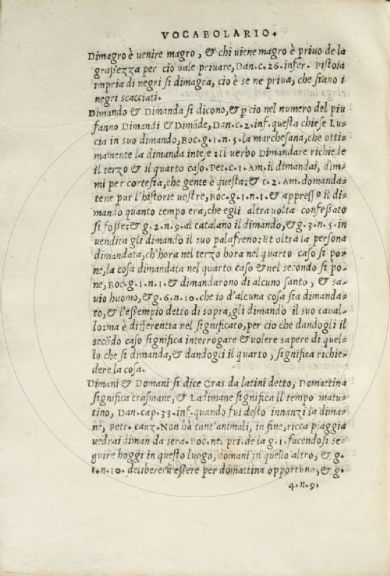 VOCABOLARIO.
Dimagro è uenire magro, & chi uiene magro è priuo de la
grassezza per cio uale priuare, Dan. c. 26. infer. Pistoia
impria di negri si dimagra, cio è se ne priua, che stauo i
negri scacciati.
Dimando & Dimanda si dicono, & p cio nel numero del piu
fanno Dimandi & Dimãde, Dan. c. 2. inf. questa chiese Lu-
cia in suo dimando, Boc. g. 1. n. 5. la marchesana, che otti-
mamente la dimanda intese: il uerbo Dimandare richiede
il terzo & il quarto caso. Pet. c. 1. Am. il dimandai, dim-
mi per cortesia, che gente è questa; & c. 2. Am. domanda-
tene pur l'historie uostre, Boc. g. 1. n. 1. & appresso il di-
mandò quanto tempo era, che egli altra uolta confessato
si fosse; & g. 2. n. 9. al catalano il dimando, & g. 3. n. 5. in
uendita gli dimandò il suo palafreno; et oltra la persona
dimandata, c'hora nel terzo hora nel quarto caso si po-
ne, la cosa dimandata nel quarto caso & nel secondo si po-
ne, Boc. g. 1. n. 1. & dimandarono di alcuno santo, & sa-
uio huomo, & g. 6. n. 10. che io d'alcuna cosa sia dimanda-
to, & l'essempio detto di sopra, gli dimandò il suo caual-
lo: ma è differentia nel significato, per cio che dandogli il
secõdo caso significa interrogare & uolere sapere di quel-
lo che si dimanda, & dandogli il quarto, significa richie-
dere la cosa.
Dimani & Domani si dice Cras da latini detto, Domattina
significa crasmane, & La dimane significa il tempo matu-
tino, Dan. cap. 33. inf. quando fui desto innanzi la dima-
ne, Petr. canz. Non ha tant'animali, in fine, ricca piaggia
uedrai diman da sera. Boc. nel pri. de la g. 1. facendosi se-
guire hoggi in questo luogo, domani in quello altro, & g.
1. n. 10. deliberera essere per domattina opportuna, & g.
4. n. 9.